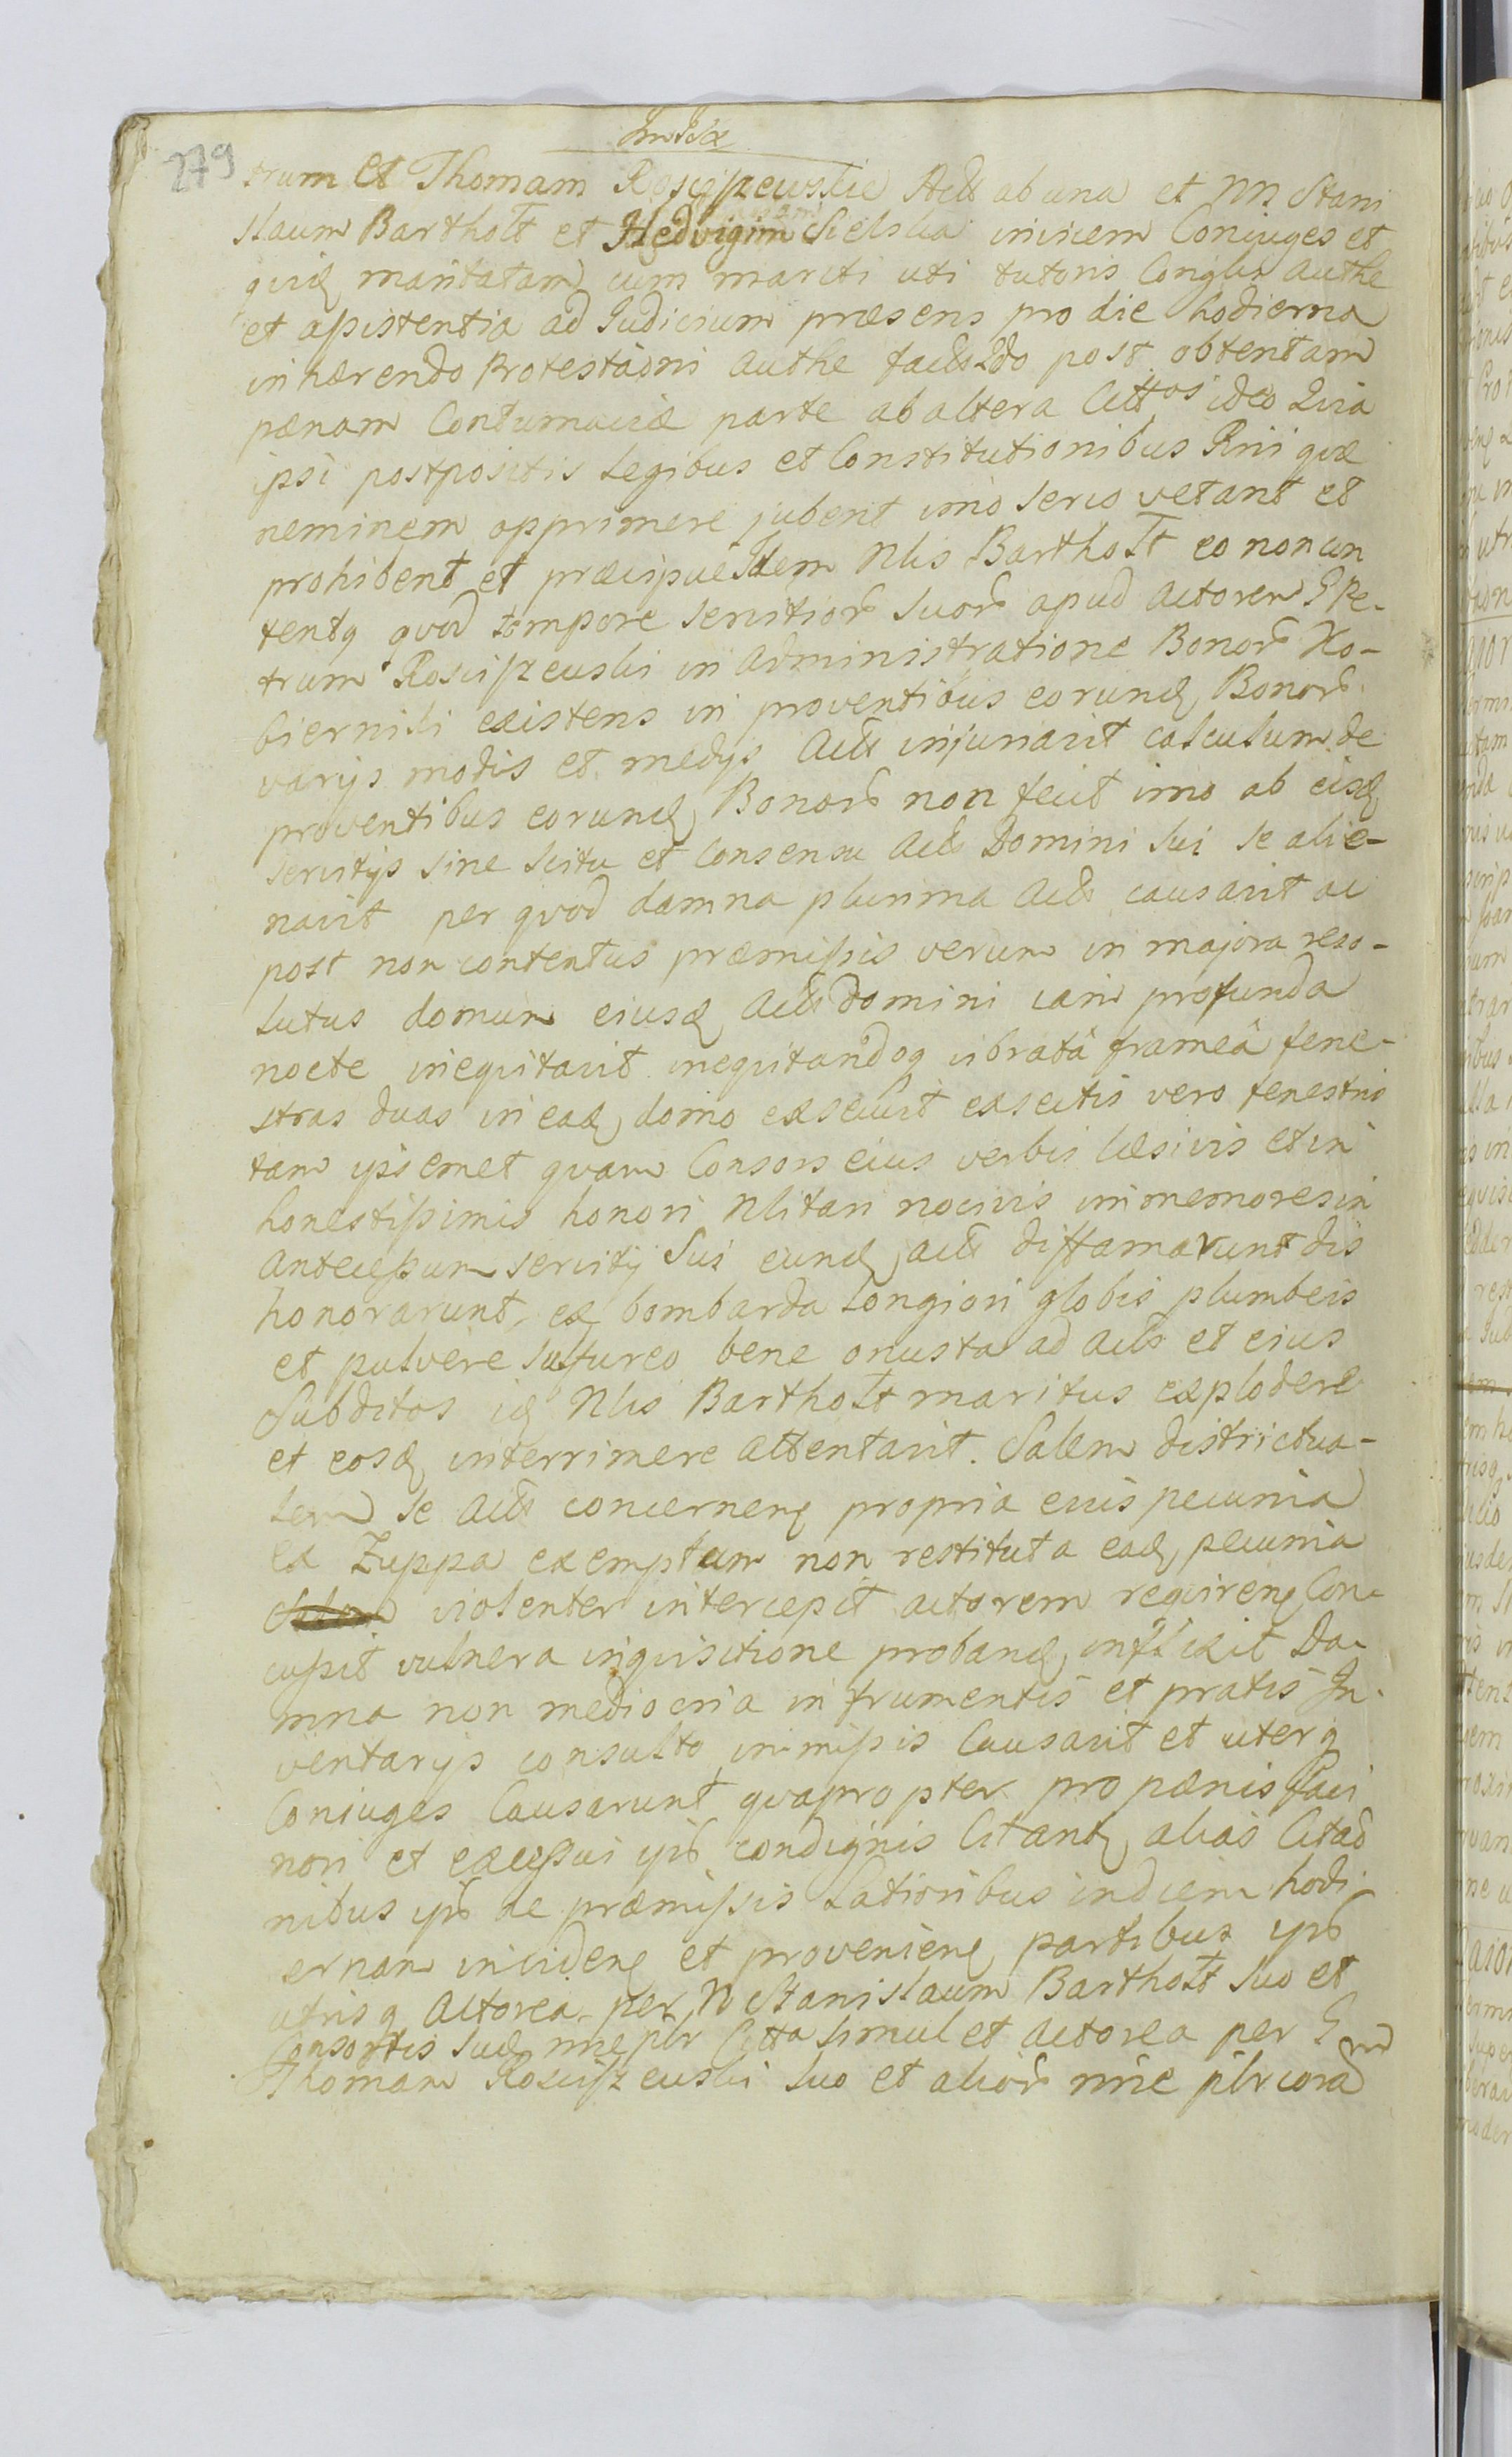 279
trum et Thomam Rosciszewskie Actt ab una et NN Stani
slaum Bartholt et Hedvigim Sielska invicem Coniuges et
qvid maritatam cum mariti uti tutoris Coniglis Authe
et assistentia ad Iudicium præsens pro die hodierna
inhærendo Protestaōni Authe post obtentam
pænam Contumaciæ parte ab altera Cittos ideo Qvia
ipsi postpositis Legibus et Constitutionibus Rnii qvæ
neminem opprimere jubent imo serio vetant et
prohibent et præcipuè Idem Nlis Bartholt eo non con
tentq qvod tempore servitior suor apud Actorem G Pe-
trum Rosciszeuski in Administratione Bonor Ko-
bierniki existens in proventibus eorund Bonor
varijs modis et medijs Actt injuriavit calculum de
proventibus eorund Bonor non fecit imo ab eisd
servitijs sine scitu et Consensu Actt Domini sui se alie-
navit per qvod damna plurima Actt causavit ac
post non contentus præmissis verum in majora reso-
lutus domum eiusd Actt domini iam profunda
nocte ineqvitavit ineqvitandoq vibratâ frameâ fene-
stras duas in ead domo exsecuit exsectis vero fenestris
tam ipsemet qvam Consors eius verbis læsivis et in
honestissimis honori Nlitari nocivis immemores in
antecessum servitij sui eund actt diffamarunt dis
honorarunt, ex bombarda longiori globis plumbeis
et pulvere sulfureo bene onusta ad Actt et eius
Subditos id Nlis Bartholt maritus explodere
et eosd interrimere attentavit. Salem districtua-
lem se Actt concernen propria eius pecunia
ex Zuppa exemptam non restituta ead pecunia
violenter intercepit actorem reqviren Con-
cussit vulnera inqvisitione proband inflixit Da-
mna non mediocria in frumentis et pratis In-
ventarijs consulto immissis Causavit et uterq
Coniuges Causarunt qvapropter pro pænis
nori et excessui ips condignis Citant alias Citaō
nibus ips de præmissis Latioribus in diem hodi-
ernam inciden et provenien partibus ips
utrisq Actorea per N Stanislaum Bartholt suo et
Consortis suæ nnie plr Citta simul et Actorea per G
Thomam Rosciszeuski suo et alior nnie plr cora